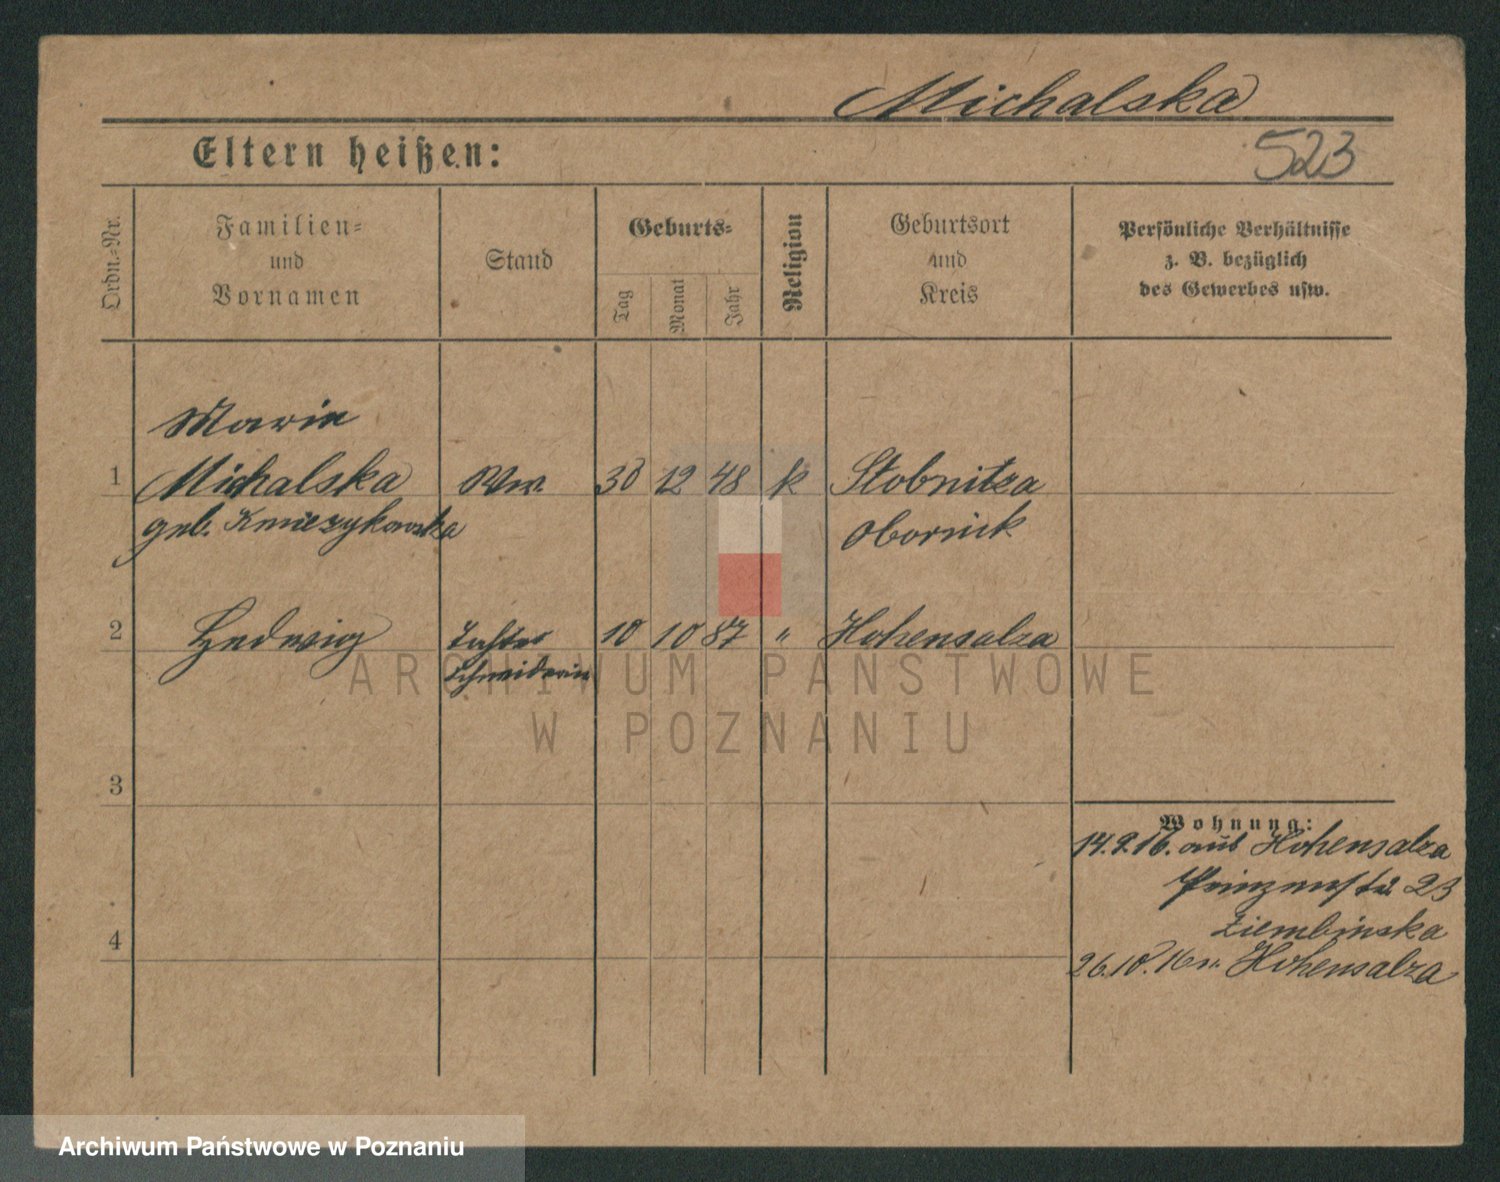 Michalska
Eltern heißen:
523
Ordn.-Nr.
Familien-
und
Vornamen
Stand
Geburts-
Tag
Monat
Jahr
Religion
Geburtsort
und
Kreis
Persönliche Verhältnisse
z. B. bezüglich
des Gewerbes usw.
Marie
1 Michalska Ww. 30 12 48 k Stobnitza
geb. Obornick
2 Hedwig Tochter 10 10 87 " Hohensalza
Schneiderin
3
4
Wohnung:
14.9.16. aus Hohensalza
Prinzenstr. 23
Ziembinska
26.10.16 n. Hohensalza
ARCHIWUM PAŃSTWOWE
W POZNANIU
Archiwum Państwowe w Poznaniu